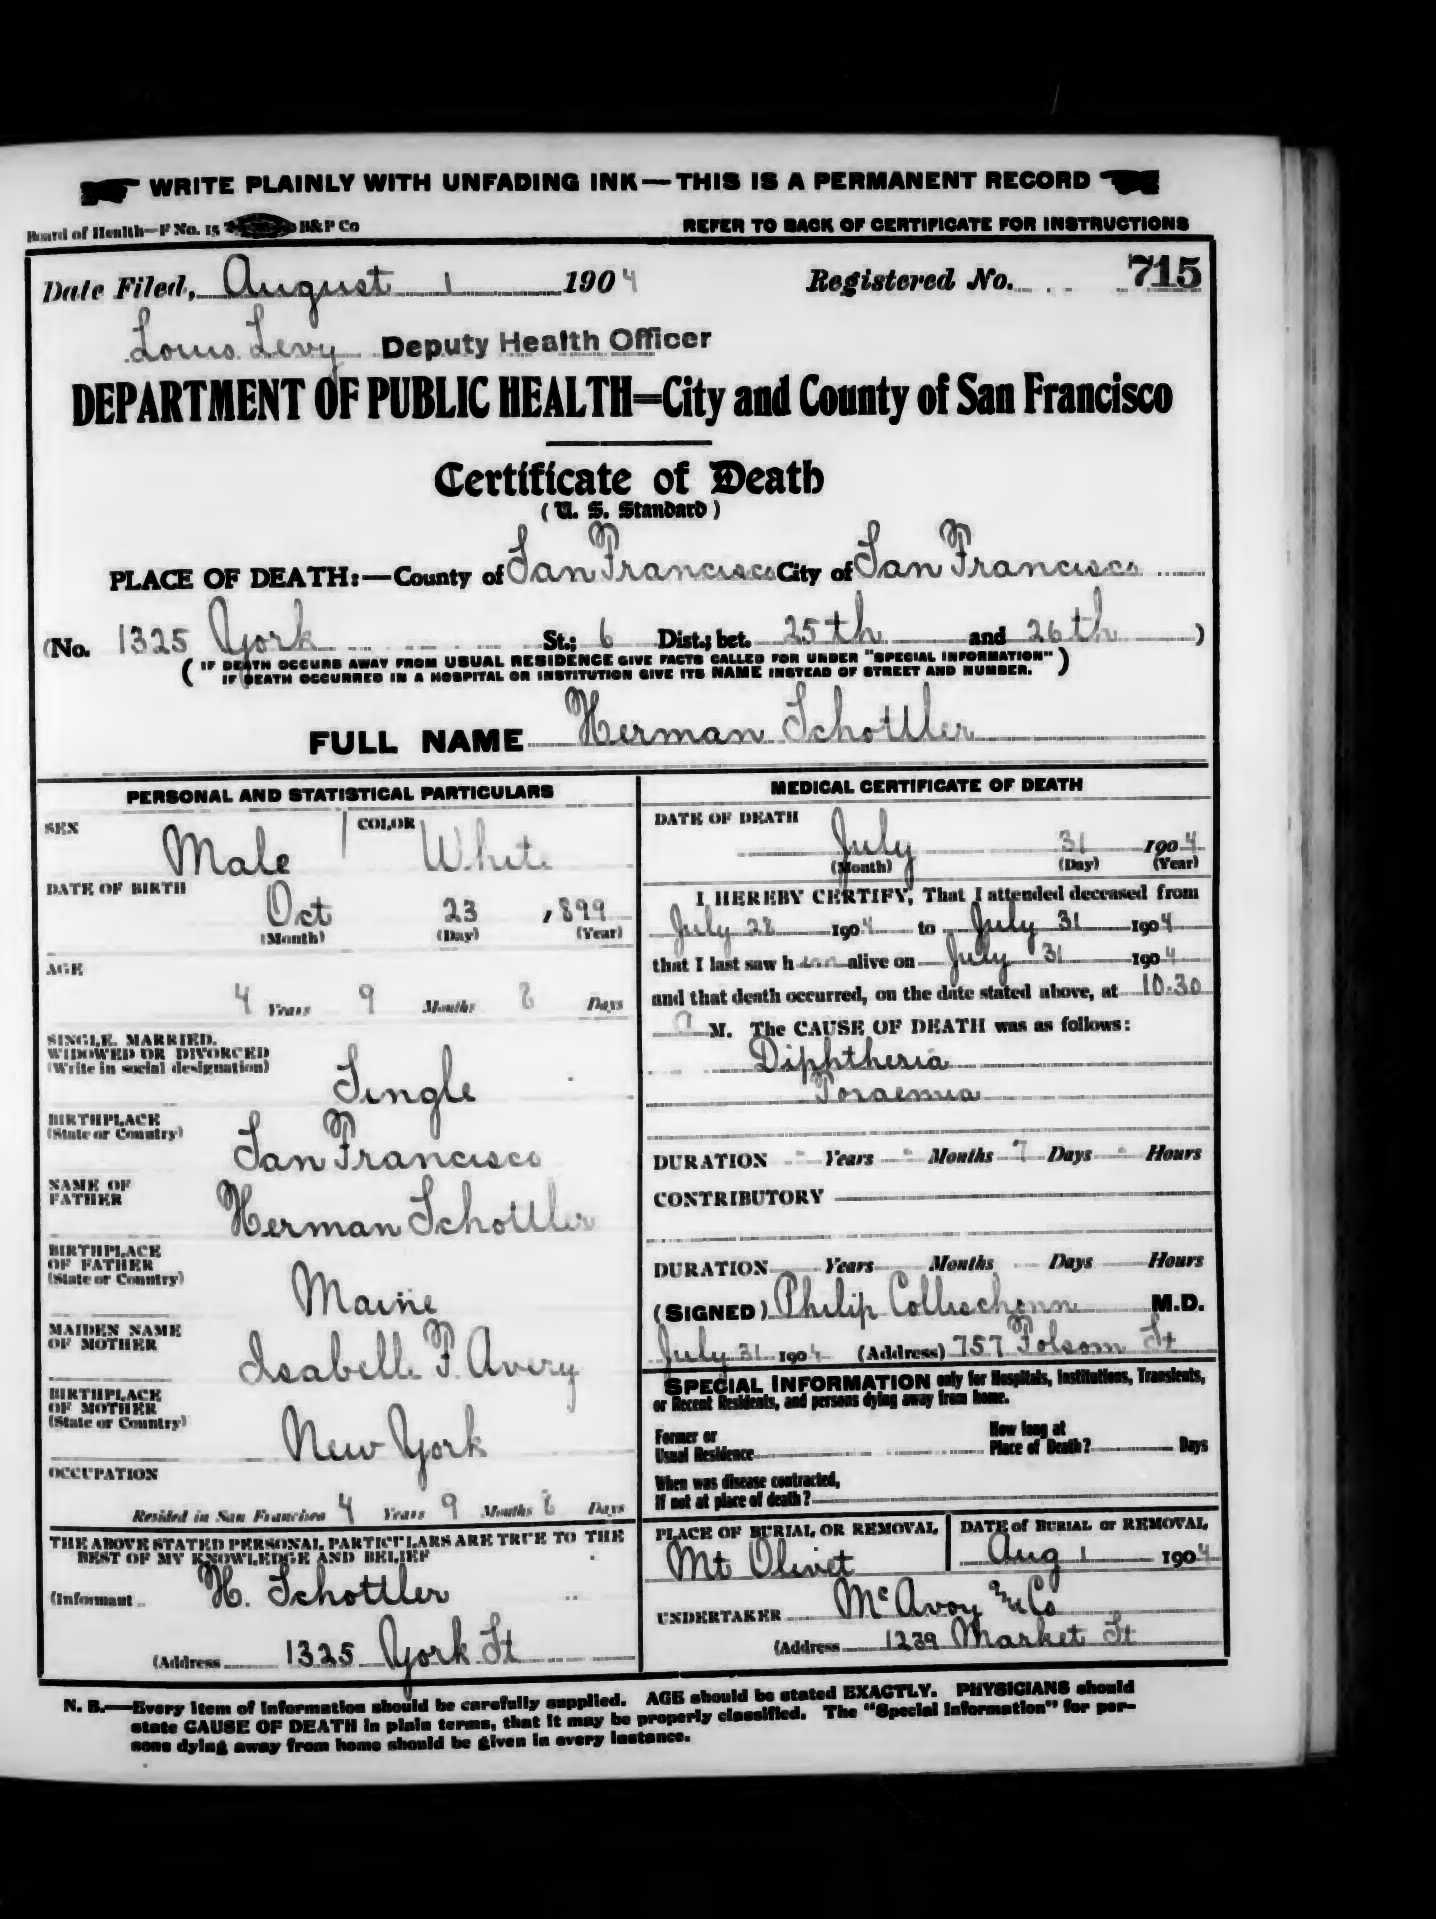 WRITE PLAINLY WITH UNFADING INK—THIS IS A PERMANENT RECORD
Board of Health—F No. 15 B&P Co REFER TO BACK OF CERTIFICATE FOR INSTRUCTIONS
Date Filed, August 1 1904 Registered No. 715
Louis Levy Deputy Health Officer
DEPARTMENT OF PUBLIC HEALTH—City and County of San Francisco
Certificate of Death
(U. S. Standard)
PLACE OF DEATH:—County of San Francisco City of San Francisco
(No. 1325 York St.; 6 Dist.; bet. 25th and 26th )
( IF DEATH OCCURS AWAY FROM USUAL RESIDENCE GIVE FACTS CALLED FOR UNDER "SPECIAL INFORMATION" )
IF DEATH OCCURRED IN A HOSPITAL OR INSTITUTION GIVE ITS NAME INSTEAD OF STREET AND NUMBER.
FULL NAME Herman Schottler
PERSONAL AND STATISTICAL PARTICULARS
SEX Male COLOR White
DATE OF BIRTH
Oct 23 1899
(Month) (Day) (Year)
AGE
4 Years 9 Months 8 Days
SINGLE, MARRIED,
WIDOWED OR DIVORCED
(Write in social designation)
Single
BIRTHPLACE
(State or Country)
San Francisco
NAME OF
FATHER
Herman Schottler
BIRTHPLACE
OF FATHER
(State or Country)
Maine
MAIDEN NAME
OF MOTHER
Isabelle F. Avery
BIRTHPLACE
OF MOTHER
(State or Country)
New York
OCCUPATION
Resided in San Francisco 4 Years 9 Months 8 Days
THE ABOVE STATED PERSONAL PARTICULARS ARE TRUE TO THE
BEST OF MY KNOWLEDGE AND BELIEF
(Informant H. Schottler
(Address 1325 York St
MEDICAL CERTIFICATE OF DEATH
DATE OF DEATH
July 31 1904
(Month) (Day) (Year)
I HEREBY CERTIFY, That I attended deceased from
July 28 1904 to July 31 1904
that I last saw him alive on July 31 1904
and that death occurred, on the date stated above, at 10.30
a M. The CAUSE OF DEATH was as follows:
Diphtheria
Toxaemia
DURATION - Years - Months 7 Days - Hours
CONTRIBUTORY
DURATION Years Months Days Hours
(SIGNED) Philip Collischonn M.D.
July 31 1904 (Address) 757 Folsom St
SPECIAL INFORMATION only for Hospitals, Institutions, Transients,
or Recent Residents, and persons dying away from home.
Former or
Usual Residence
How long at
Place of Death? Days
When was disease contracted,
If not at place of death?
PLACE OF BURIAL OR REMOVAL
Mt Olivet
DATE of BURIAL or REMOVAL
Aug 1 1904
UNDERTAKER McAvoy & Co
(Address 1239 Market St
N. B.—Every item of information should be carefully supplied. AGE should be stated EXACTLY. PHYSICIANS should
state CAUSE OF DEATH in plain terms, that it may be properly classified. The "Special Information" for per-
sons dying away from home should be given in every instance.